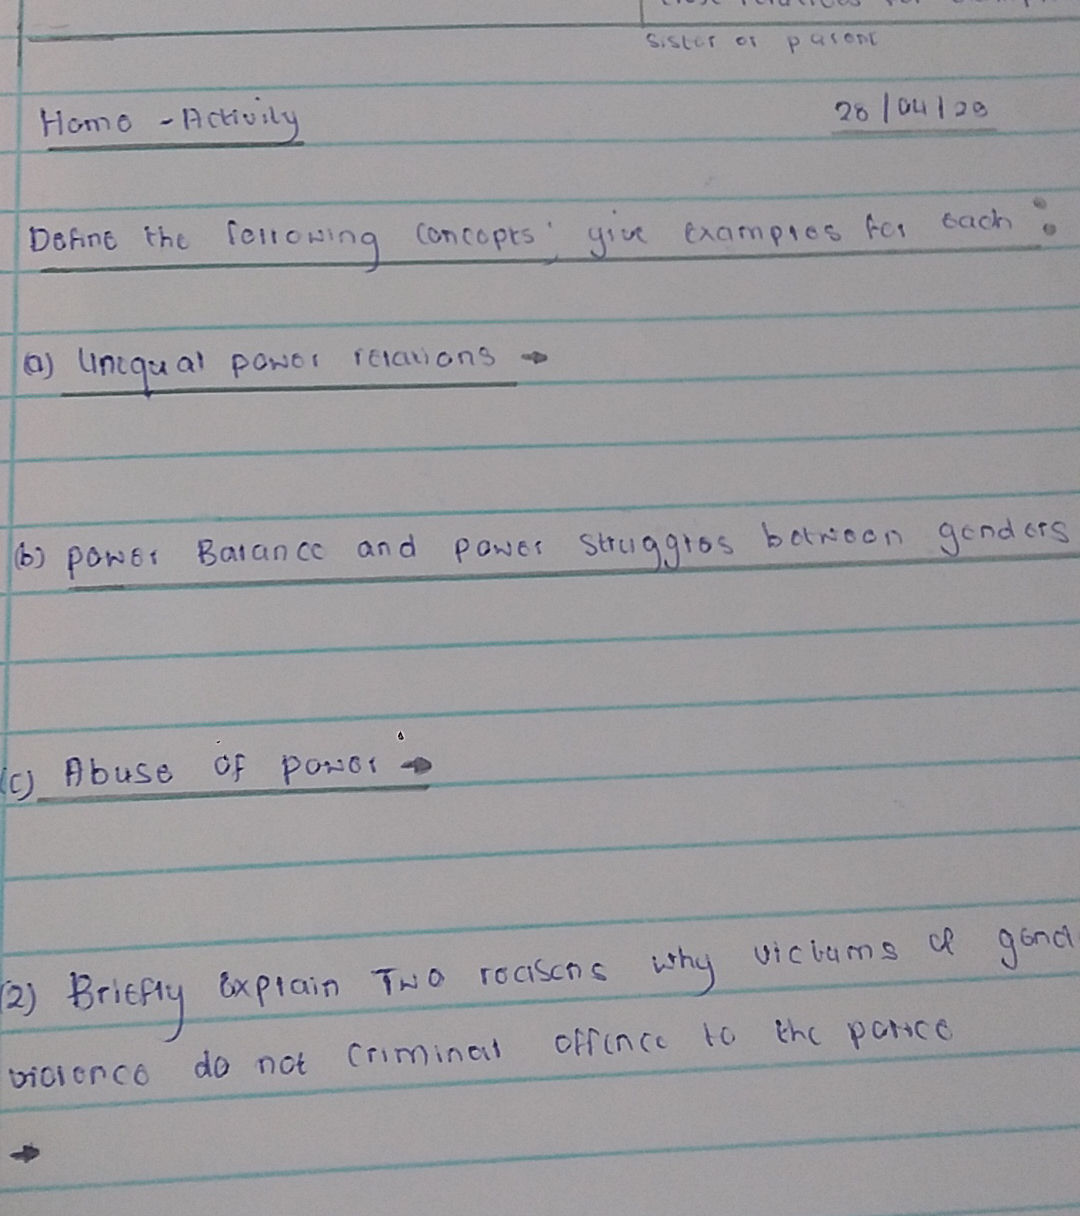 sister or parent
Home - Activity 28/04/23
Define the following concepts; give examples for each :
(a) Unequal power relations →
(b) power Balance and power struggles between genders
(c) Abuse of power →
(2) Briefly explain TWO reasons why victums of gend
violence do not criminal offence to the police
→